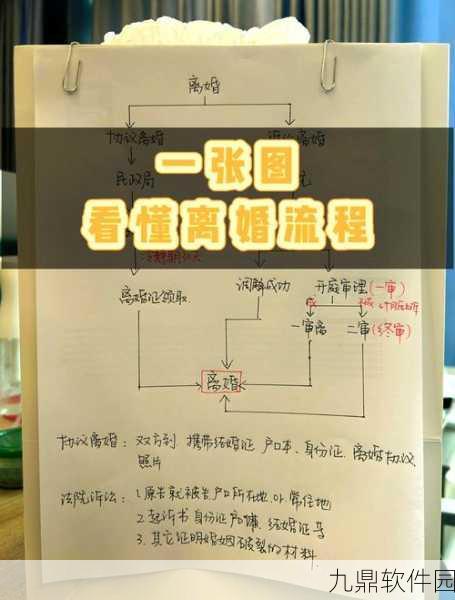 离婚
协议离婚 诉讼离婚
民政局
一张图
看懂离婚流程
离婚证领取 调解成功 开庭审理(一审)
一审离 二审(终审)
离婚
协议离婚: 双方到 携带结婚证 户口本、身份证、离婚协议
照片
法院诉讼: 1.原告就被告户口所在地 or 常住地
2.起诉书 身份证 户口簿 结婚证等
3.其它证明婚姻破裂的材料
九鼎软件园